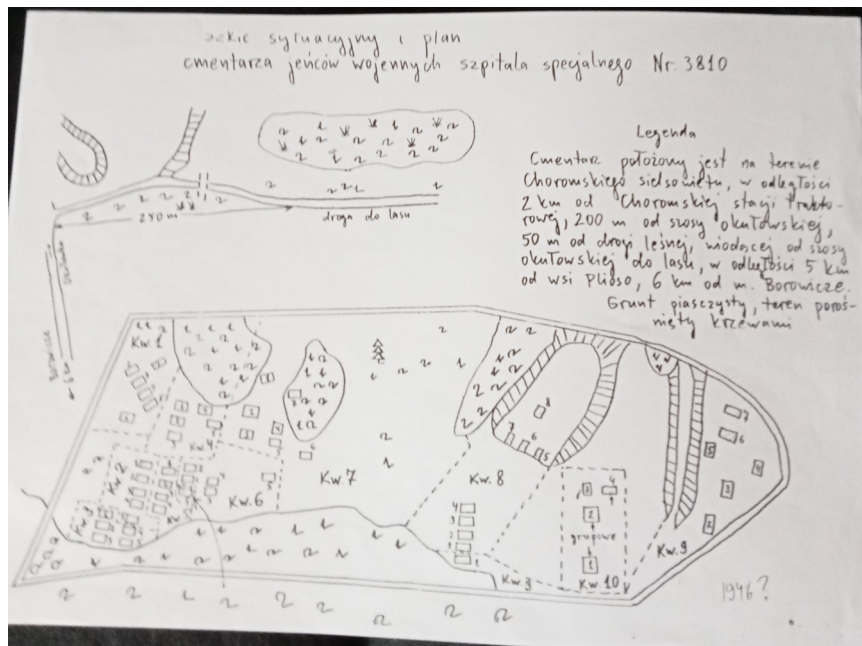 szkic sytuacyjny i plan
cmentarza jeńców wojennych szpitala specjalnego Nr. 3810
Legenda
Cmentarz położony jest na terenie
Choromskiego sielsowietu, w odległości
2 km od Choromskiej stacji Trakto-
rowej, 200 m od szosy okułowskiej,
50 m od drogi leśnej, wiodącej od szosy
okułowskiej do lasu, w odległości 5 km
od wsi Plioso, 6 km od m. Borowicze.
Grunt piaszczysty, teren poroś-
nięty krzewami
250 m
droga do lasu
Borowicze
6 km
Kw. 1
Kw. 2
Kw. 4
Kw. 6
Kw. 7
Kw. 8
8
7
6
5
4
3
Kw. 3
3
4
2
grupowe
1
Kw. 10
Kw. 9
7
6
5
4
3
2
1946?